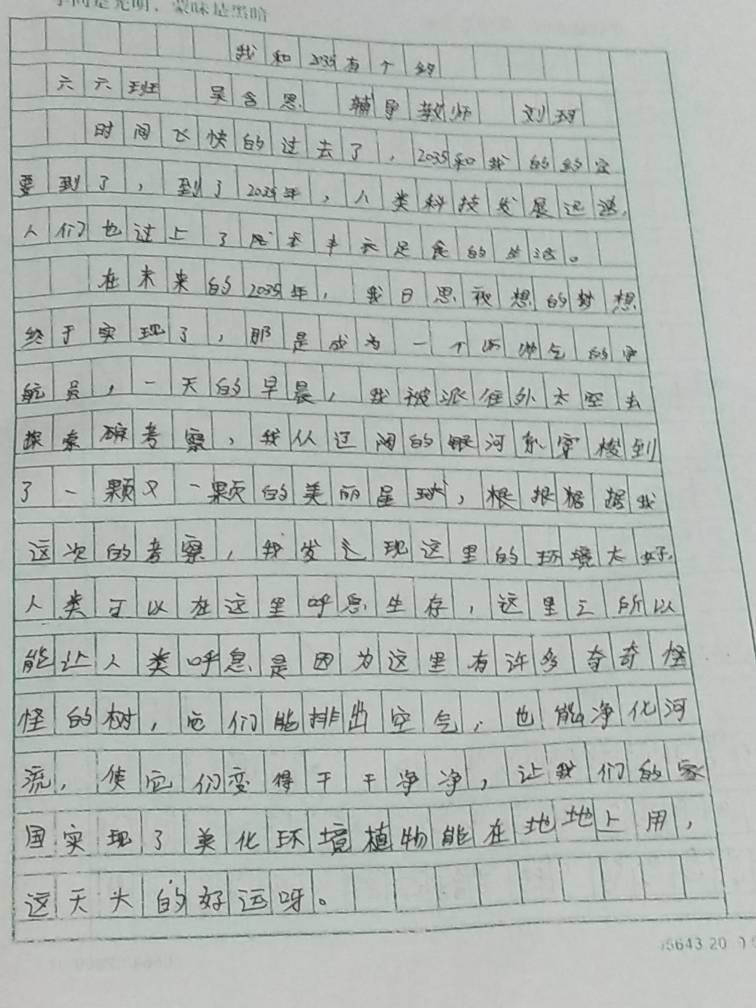 学问是光明，蒙昧是黑暗
我和2035有个约
六六班 吴含恩 辅导教师 刘珂
时间飞快的过去了，2035和我的约定
要到了，到了2035年，人类科技发展迅速，
人们也过上了丰衣足食的生活。
在未来的2035年，我日思夜想的梦想
终于实现了，那是成为一个的宇
航员，一天的早晨，我被派往外太空去
探索考察，我从辽阔的银河系穿梭到
了一颗又一颗的美丽星球，根据我
这次的考察，我发现这里的环境太好，
人类可以在这里呼息生存，这里之所以
能让人类呼息是因为这里有许多奇奇怪
怪的树，它们能排出空气，也能净化河
流，使它们变得干干净净，让我们的家
国实现了美化环境植物能在地地上用，
这天大的好运呀。
15643.20